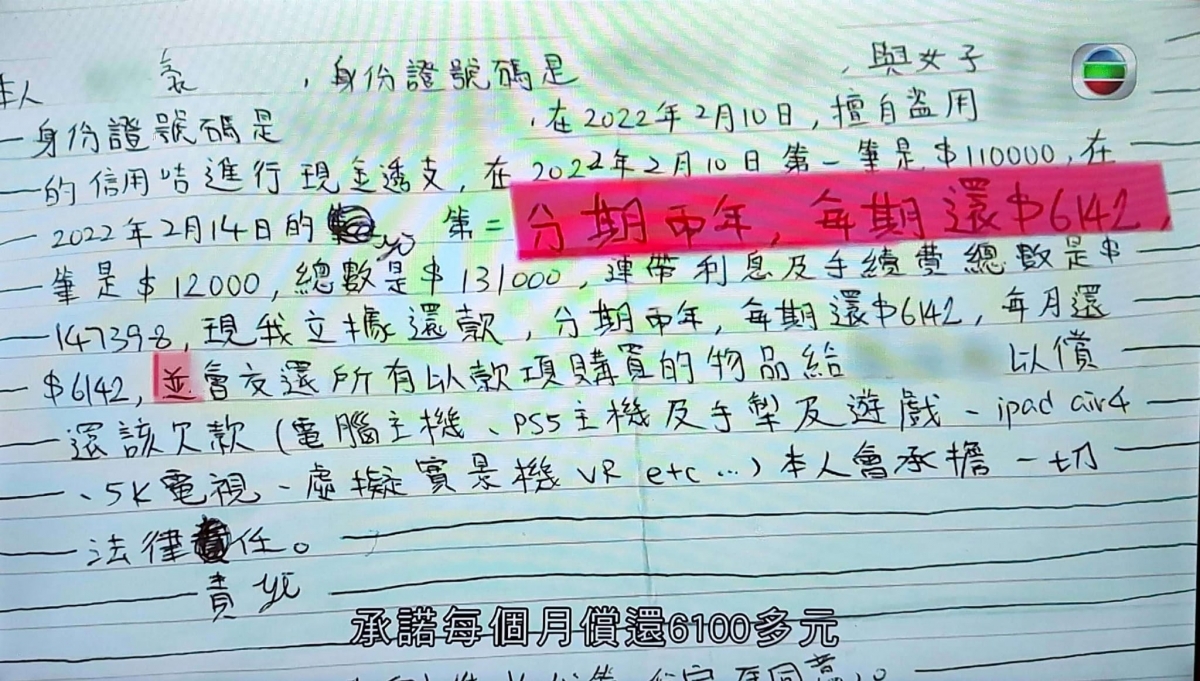 本人 袁 ,身份證號碼是 ,與女子
身份證號碼是 ,在2022年2月10日,擅自盜用
的信用咭進行現金透支,在2022年2月10日第一筆是$110000,在
2022年2月14日的 yi 第二
分期兩年,每期還$6142,
筆是$12000,總數是$131000,連帶利息及手續費總數是$
147398,現我立據還款,分期兩年,每期還$6142,每月還
$6142,並會交還所有以款項購買的物品給 以償
還該欠款(電腦主機、PS5主機及手掣及遊戲、ipad air4
、5K電視、虛擬實景機VR etc...)本人會承擔一切
法律 任。
責 yi
承諾每個月償還6100多元